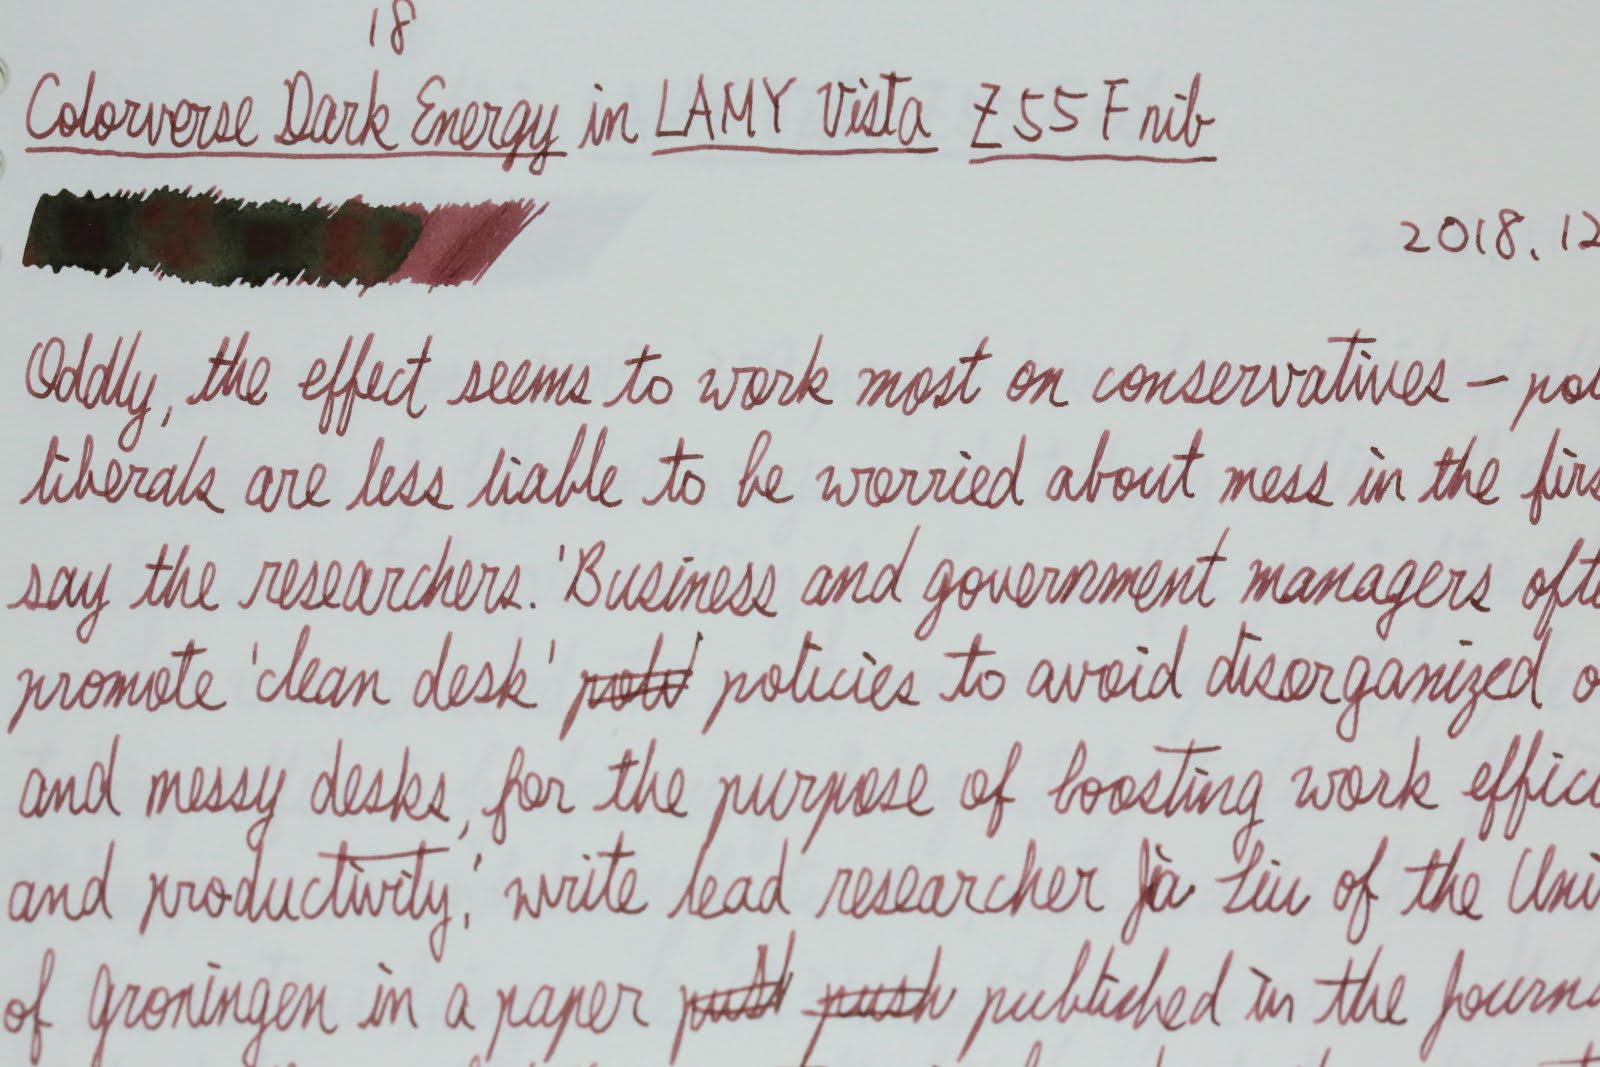 18
Colorverse Dark Energy in LAMY Vista Z55 F nib
2018.12
Oddly, the effect seems to work most on conservatives – pol
liberals are less liable to be worried about mess in the firs
say the researchers. 'Business and government managers ofte
promote 'clean desk' policies to avoid disorganized o
and messy desks, for the purpose of boosting work effici
and productivity,' write lead researcher Jia Liu of the Uni
of Groningen in a paper published in the Journa